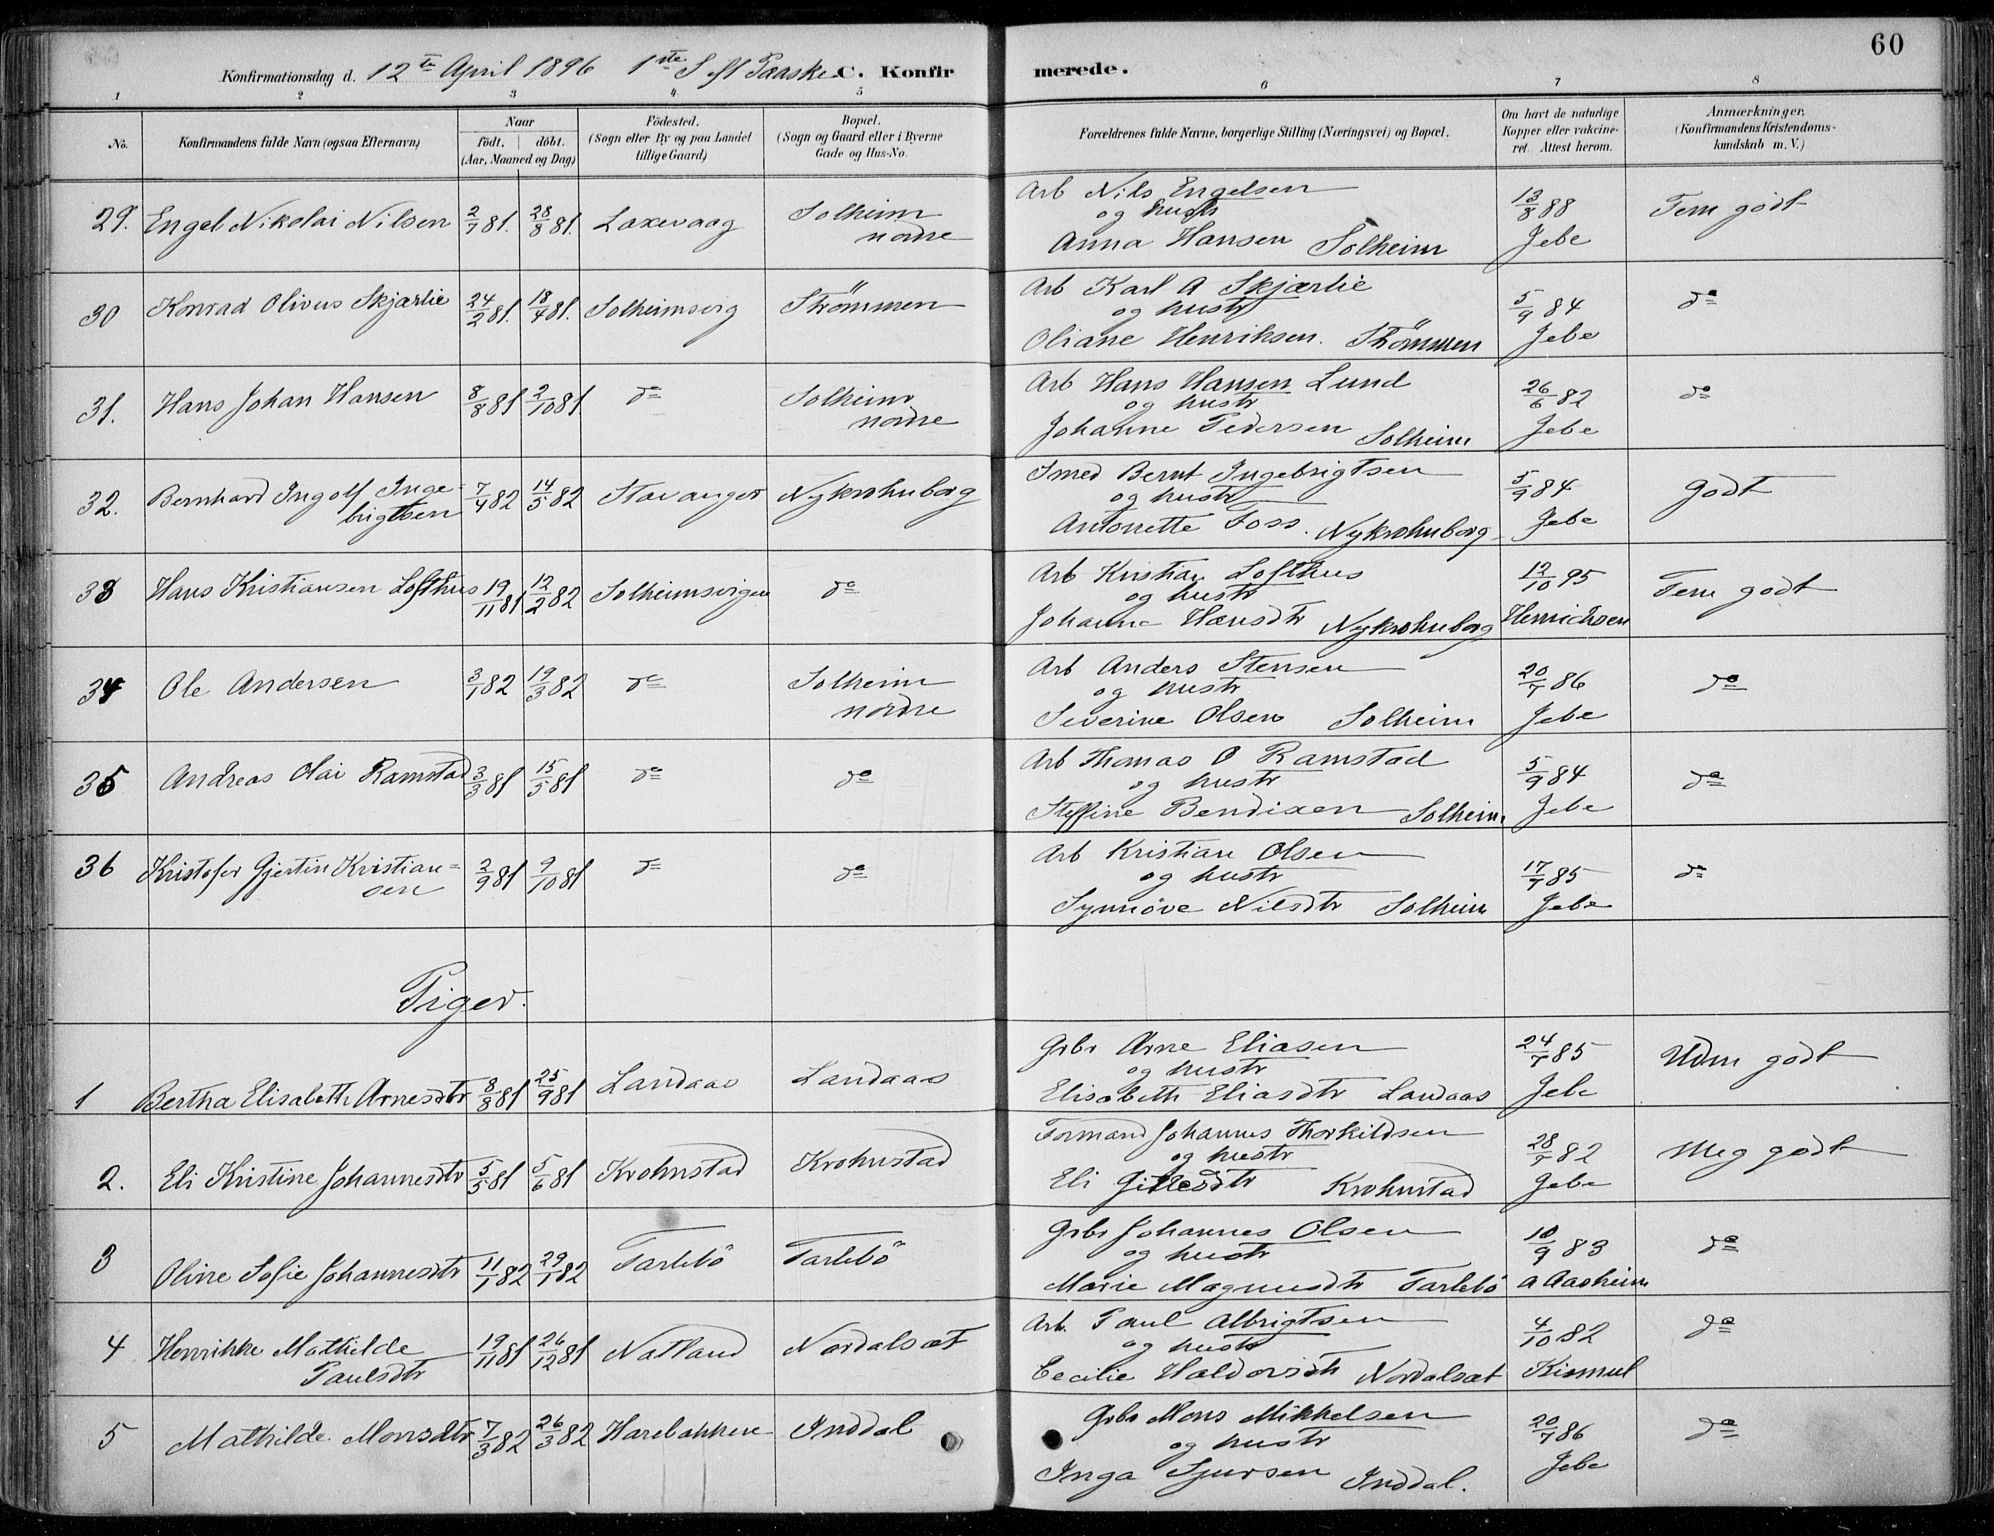 60
Konfirmationsdag d. 12te April 1896 1ste S. ef Paaske C. Konfirmerede.
1 2 3 4 5 6 7 8
No. Konfirmandens fulde Navn (ogsaa Efternavn) Naar födt, döbt. (Aar, Maaned og Dag) Födested. (Sogn eller By og paa Landet tillige Gaard) Bopæl. (Sogn og Gaard eller i Byerne Gade og Hus-No. Forældrenes fulde Navne, borgerlige Stilling (Næringsvei) og Bopæl. Om havt de naturlige Kopper eller vakcineret. Attest herom. Anmærkninger. (Konfirmandens Kristendomskundskab m. V.)
29. Engel Nikolai Nilsen 2/7 81. 28/8 81. Laxevaag Solheim nordre Arb Nils Engelsen og hustr Anna Hansen Solheim 13/8 88 Jebe Tem godt
30 Konrad Olivus Skjærlie 24/2 81. 18/4 81. Solheimsvig Strömmen Arb Karl A Skjærlie og hustr Oliane Henriksen. Strömmen 5/9 84 Jebe do
31. Hans Johan Hansen 8/8 81 2/10 81. do Solheim nordre Arb Hans Hansen Lund og hustr Johanne Pedersen Solheim 26/6 82 Jebe do
32. Bernhard Ingolf Ingebrigtsen 7/4 82 14/5 82 Stavanger Nykrohnborg Smed Bernt Ingebrigtsen og hustr Antonette Foss. Nykrohnborg 5/9 84 Jebe Godt
33 Hans Kristiansen Lofthus 19/11 81 12/2 82 Solheimsvigen do Arb Kristian Lofthus og hustr Johanna Hansdtr Nykrohnborg 12/10 95 Henrichsen Tem godt
34 Ole Andersen 3/1 82 19/3 82 do Solheim nordre Arb Anders Stensen og hustr Severine Olsen Solheim 20/7 86 Jebe do
35 Andreas Olai Ramstad 3/3 81 15/5 81 do do Arb Thomas O Ramstad og hustr Steffine Bendixen Solheim 5/9 84 Jebe do
36 Kristofer Gjertin Kristiansen 2/9 81 9/10 81 do do Arb Kristian Olsen og hustr Synnöve Nilsdtr Solheim 17/7 85 Jebe do
Piger.
1 Bertha Elisabeth Arnesdtr 8/8 81 25/9 81 Landaas Landaas Grbr Arne Eliasen og hustr Elisabeth Eliasdtr Landaas 24/7 85 Jebe Udm godt
2. Eli Kristine Johannesdtr 5/5 81 5/6 81 Krohnstad Krohnstad Formand Johannes Thorkildsen og hustr Eli Gillesdtr Krohnstad 28/9 82 Jebe Meg godt
3 Oline Sofie Johannesdtr 11/1 82 29/1 82 Tarlebö Tarlebö Grbr Johannes Olsen og hustr Marie Magnusdtr Tarlebö 10/9 83 A Aasheim do
4 Henrikke Mathilde Paulsdtr 19/11 81 26/12 81 Natland Nordalsæt Arb. Paul Albrigtsen og hustr Cecilie Haldorsdtr Nordalsæt 4/10 82 Kismul do
5 Mathilde Monsdtr 7/3 82 26/3 82 Harebakkene Inddal Grbr Mons Mikkelsen og hustr Inga Sjursen Inddal. 20/7 86 Jebe do